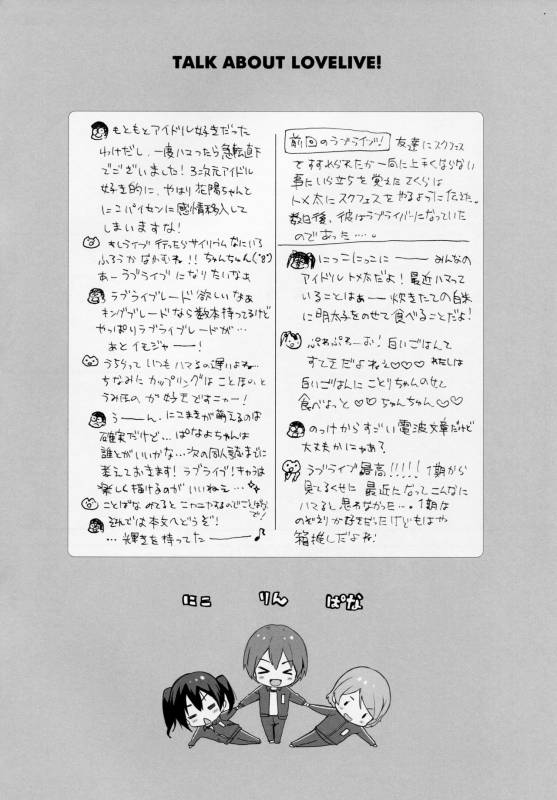 TALK ABOUT LOVELIVE!
前回のラブライブ! 友達にスクフェス
ですすめられたが一向に上手くならない
事にいら立ちを覚えたさくらは
トメ太にスクフェスをやるように伝えた。
数日後、彼はラブライバーになっていた
のであった……。
にっこにっこにー みんなの
アイドルトメ太だよ! 最近ハマって
いることはぁー 炊きたての白米
に明太子をのせて食べることだよ!
ぷわぷわーお! 白いごはんて
すてきだよねぇ♡♡♡ わたしは
白いごはんに ことりちゃんのせて
食べよっと♡ ちゅんちゅん♡♡
のっけからすごい電波文章だけど
大丈夫かにゃあ?
ラブライブ最高!!!!! 1期から
見てるくせに 最近になってこんなに
ハマると思わなかった…。1期は
のぞえりが好きだったけどもはや
箱推しだよね!
もともとアイドル好きだった
わけだし、一度ハマったら急転直下
でございました! 3次元アイドル
好き的に、やはり花陽ちゃんと
にこパイセンに感情移入して
しまいますな!
もしライブ行ったらサイリウムなにいろ
ふろうかなかもね!! ちゅんちゅん(・8・)
あーラブライブになりたいなぁ
ラブライブレード欲しいなぁ
キングブレードなら数本持ってるけど
やっぱりラブライブレードが…
あとイモジャー!
うちらっていつもハマるの遅いよね…
ちなみにカップリングはことほのと
うみほのが好きですにゃー!
うーん、にこまきが萌えるのは
確実だけど…ぱなよちゃんは
誰とがいいかな…次の同人誌までに
考えておきます! ラブライブ!キャラは
楽しく描けるのがいいねぇ…
ことぱな みてると ニヤニヤするのでことぱな
で!
それでは本文へどうぞ!
…輝きを持ってた――♪
にこ りん ぱな